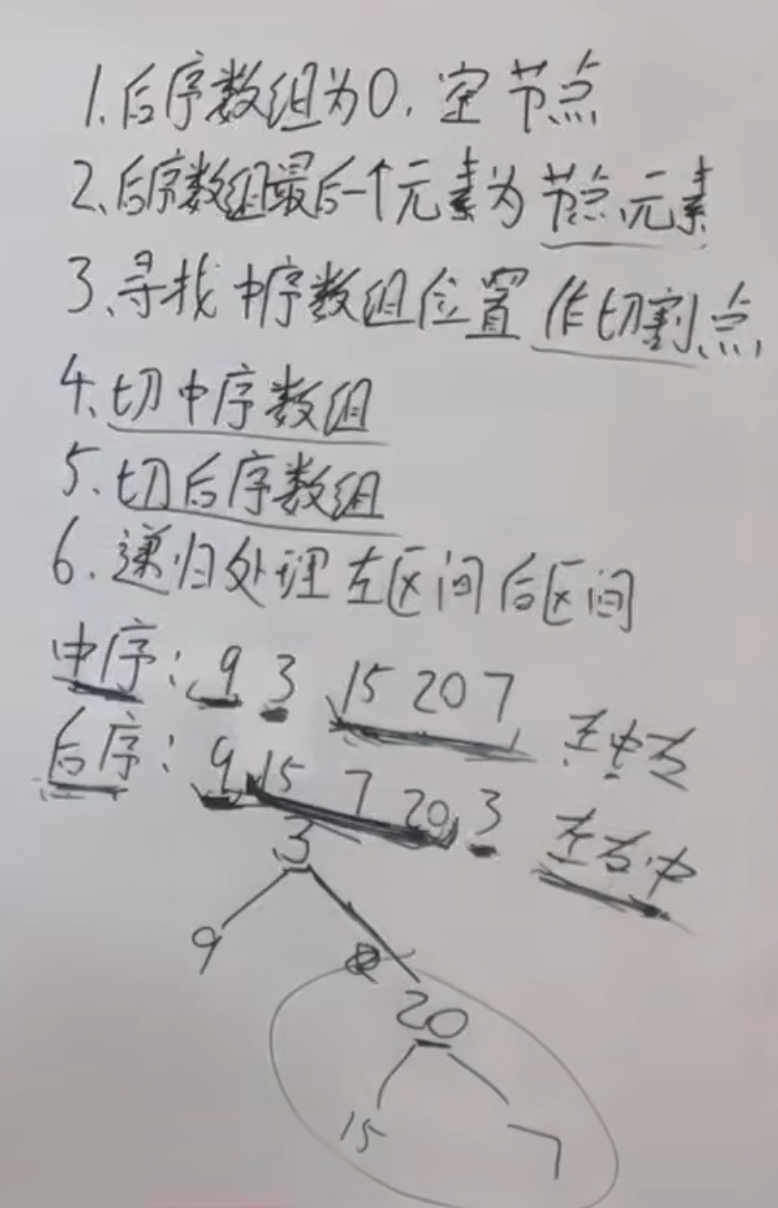 1.后序数组为0.空节点
2.后序数组最后一个元素为节点元素
3.寻找中序数组位置作切割点
4.切中序数组
5.切后序数组
6.递归处理左区间后区间
中序:9 3 15 20 7 左中右
后序:9 15 7 20 3 左右中
3
9
20
15 7